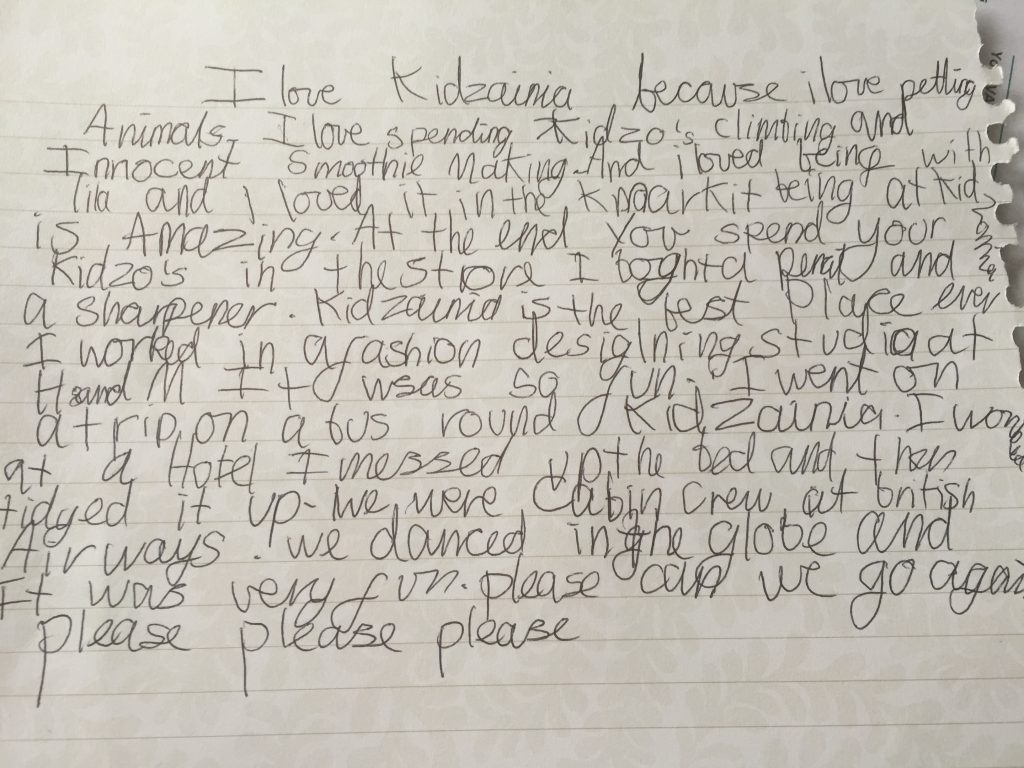 I love Kidzainia because i love petting
Animals, I love spending Kidzo's climbing and
Innocent Smoothie Making. And i loved being with
lila and I loved it in the Kmaarkit being at Kid
is Amazing. At the end you spend your
Kidzo's in the strore I boght a and
a sharpener. Kidzainia is the best place ever
I worked in a fashion desiglning studio at
H and M It wsas so fun. I went on
a trip on a bus round Kidzainia. I
at a Hotel I messed up the bed and then
tidyed it up. We were Cabin crew at british
Airways. we danced in the globe and
It was very fun. please can we go again
please please please